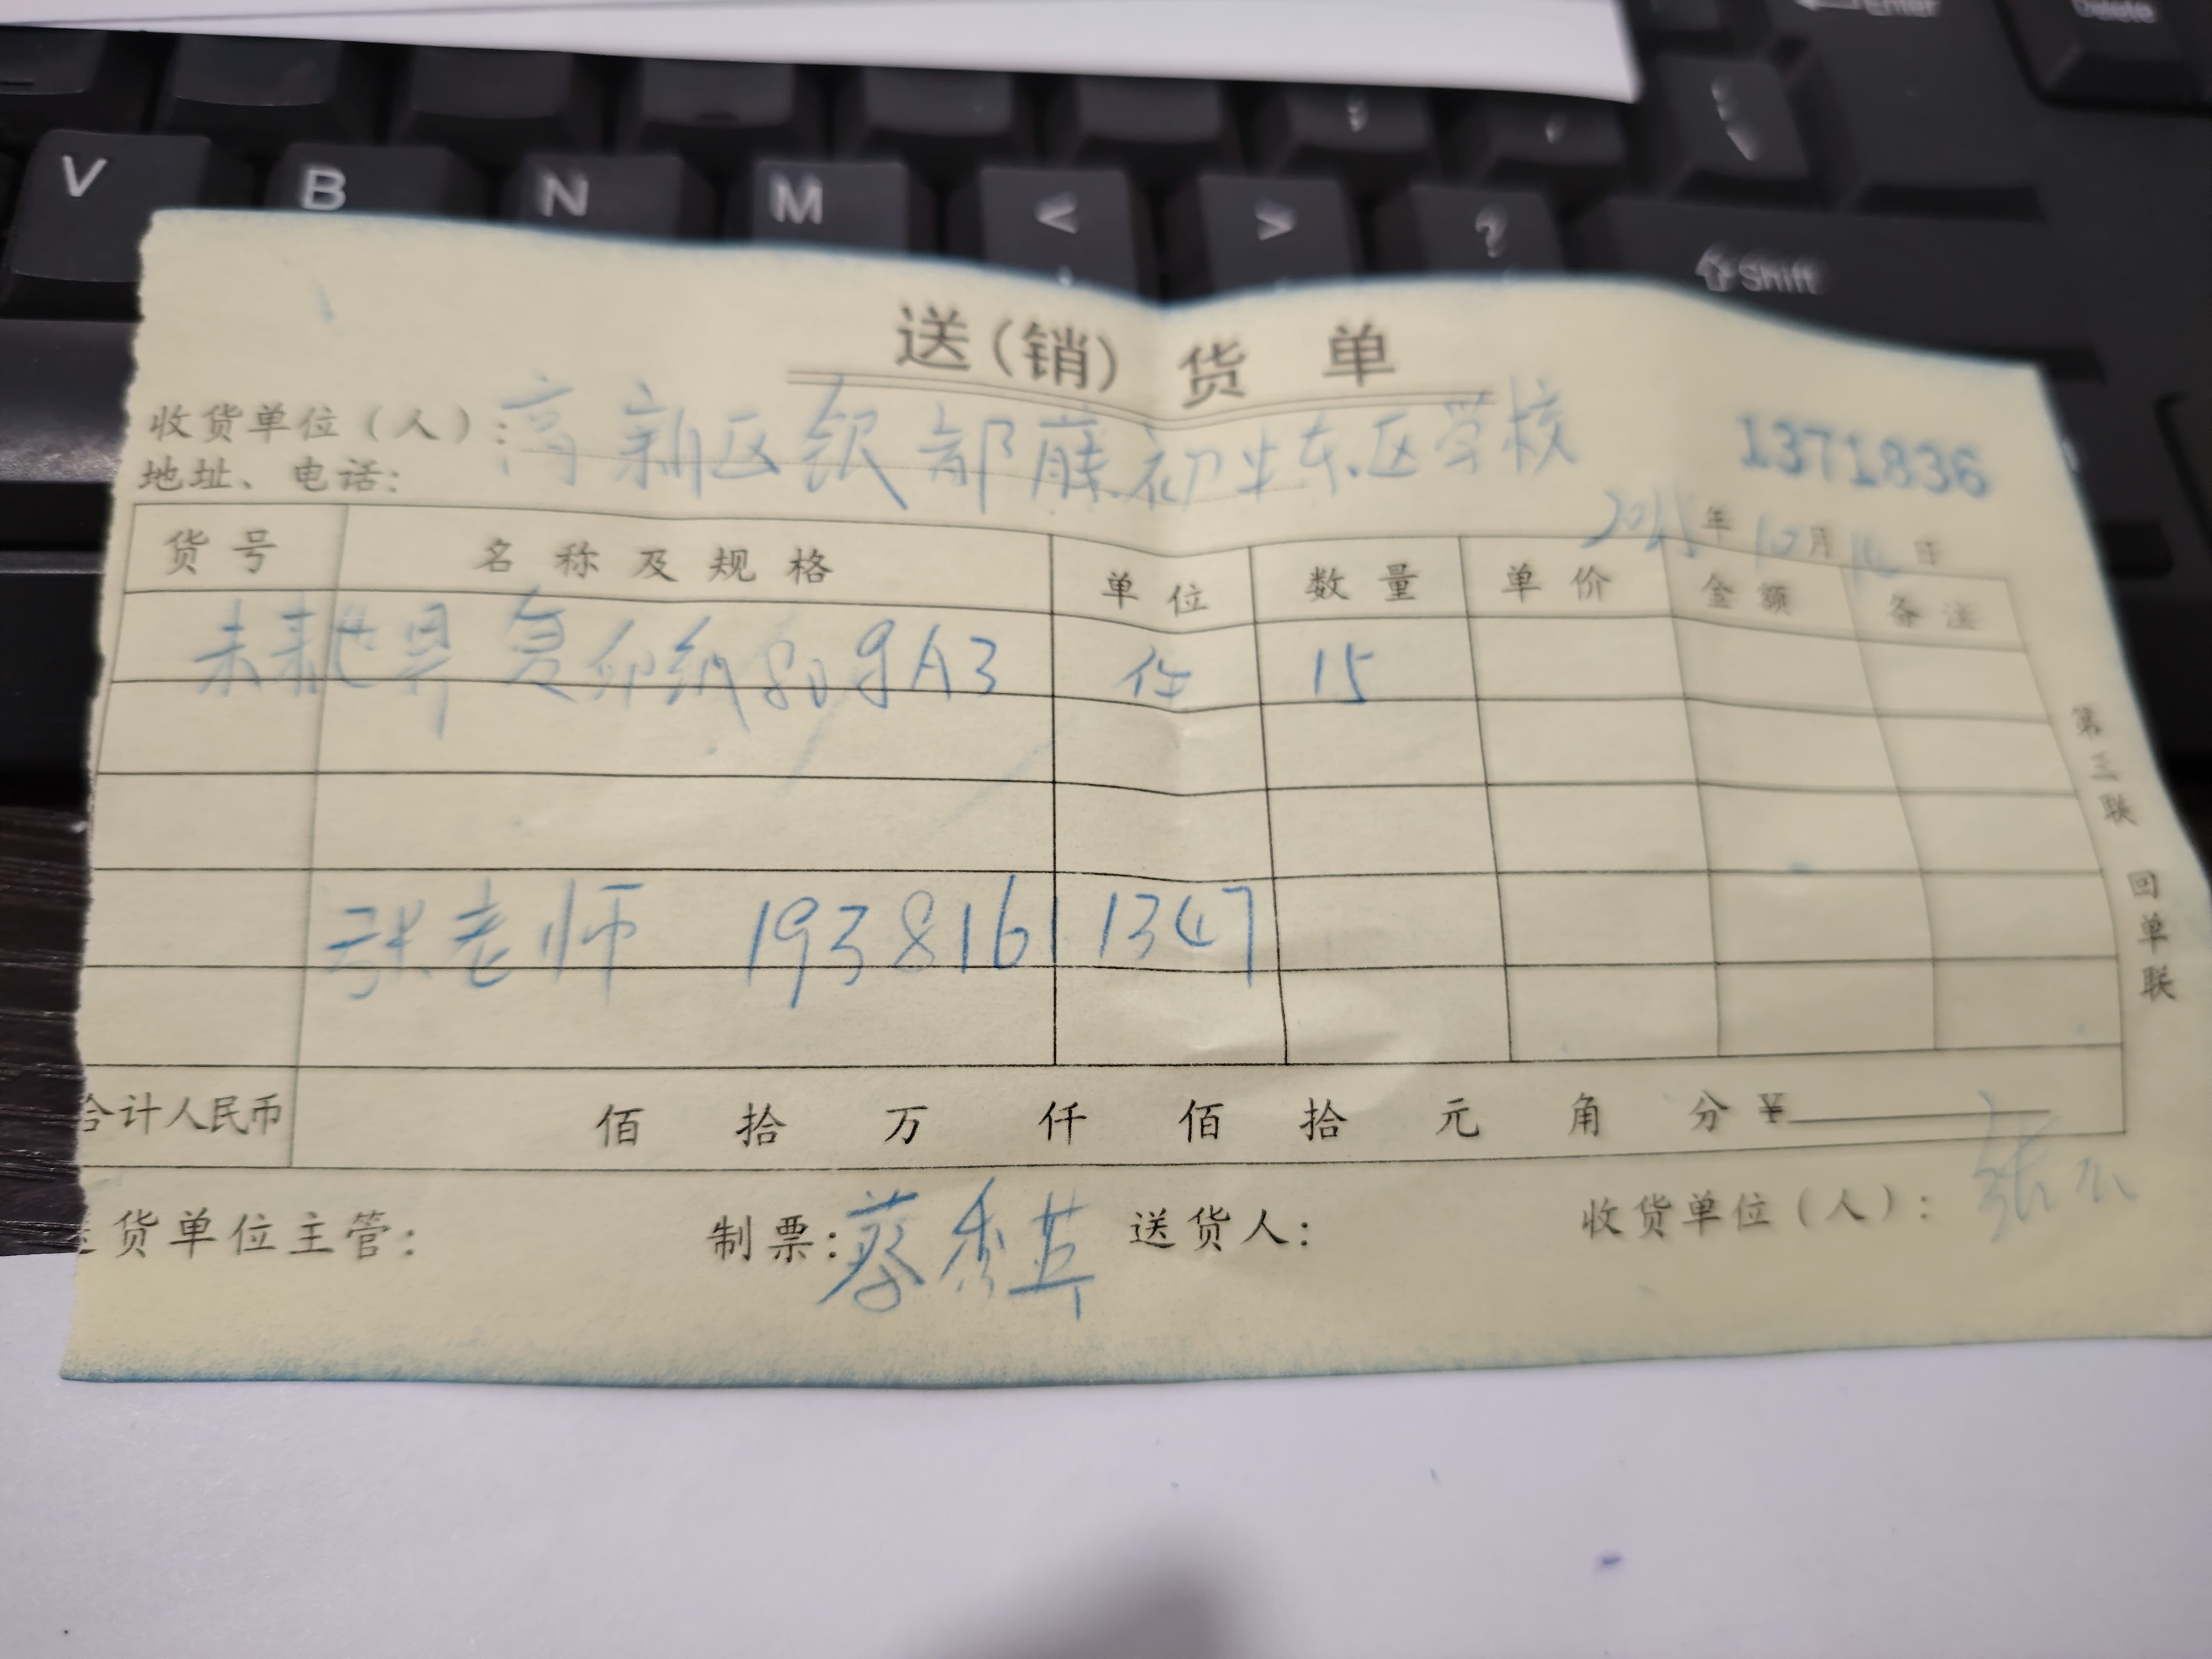 Enter Delete
V B N M < > ?
Shift
送(销)货单
收货单位(人):高新区银都藤初 东区学校
地址、电话:
1371836
2025年12月 日
货号 名称及规格 单位 数量 单价 金额 备注
未来世界 复印纸80gA3 件 15
张老师 19381611347
合计人民币 佰 拾 万 仟 佰 拾 元 角 分 ¥
货单位主管: 制票:蔡秀英 送货人: 收货单位(人):张
第三联 回单联